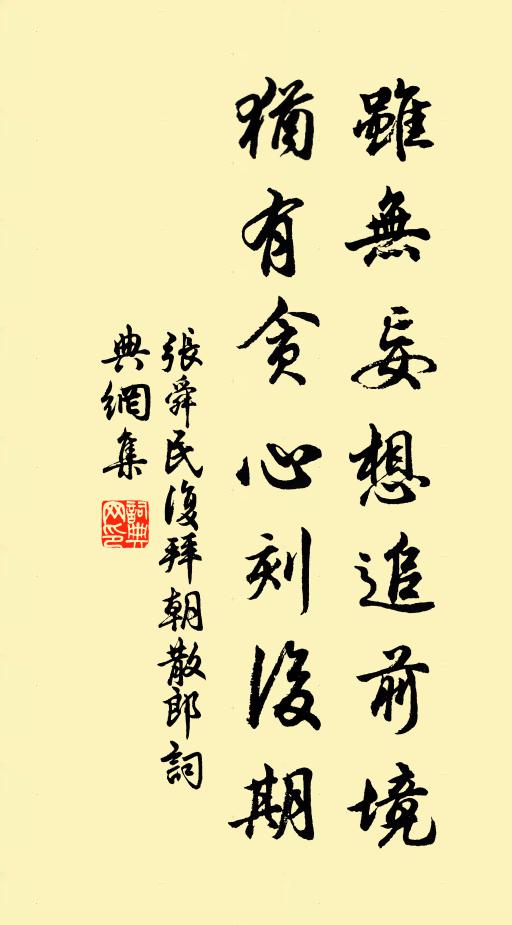 雖無妄想追前境
猶有貪心刻後期
張舜民復拜朝散郎詞
典網集
詞典网印